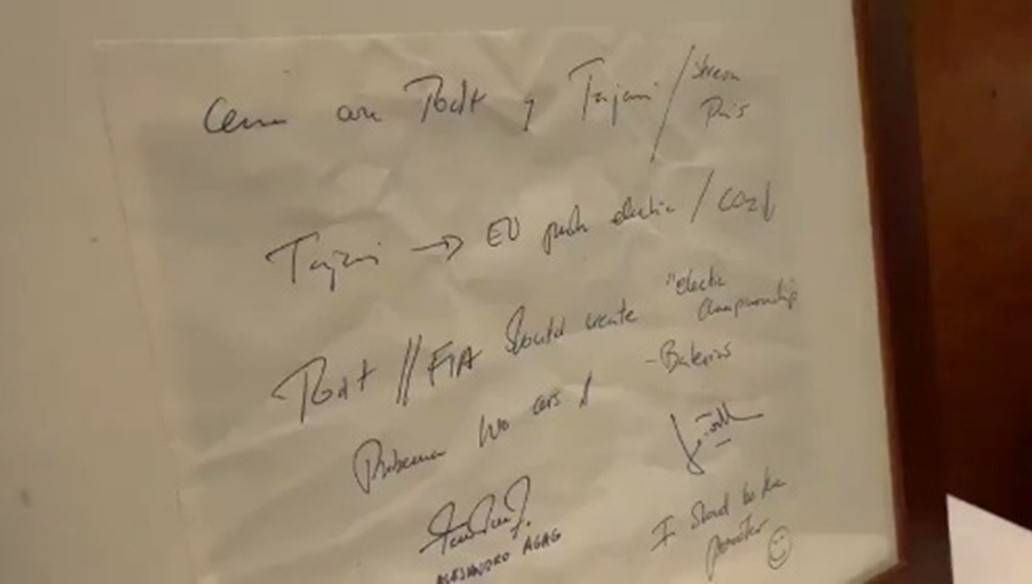 Cena con Todt y Tajani / Stresa
París
Tajani → EU push electric / CO2↓
Todt // FIA should create "electric
Championship
- Baterías
Problema two cars
I should be the
promoter ☺
ALEJANDRO AGAG